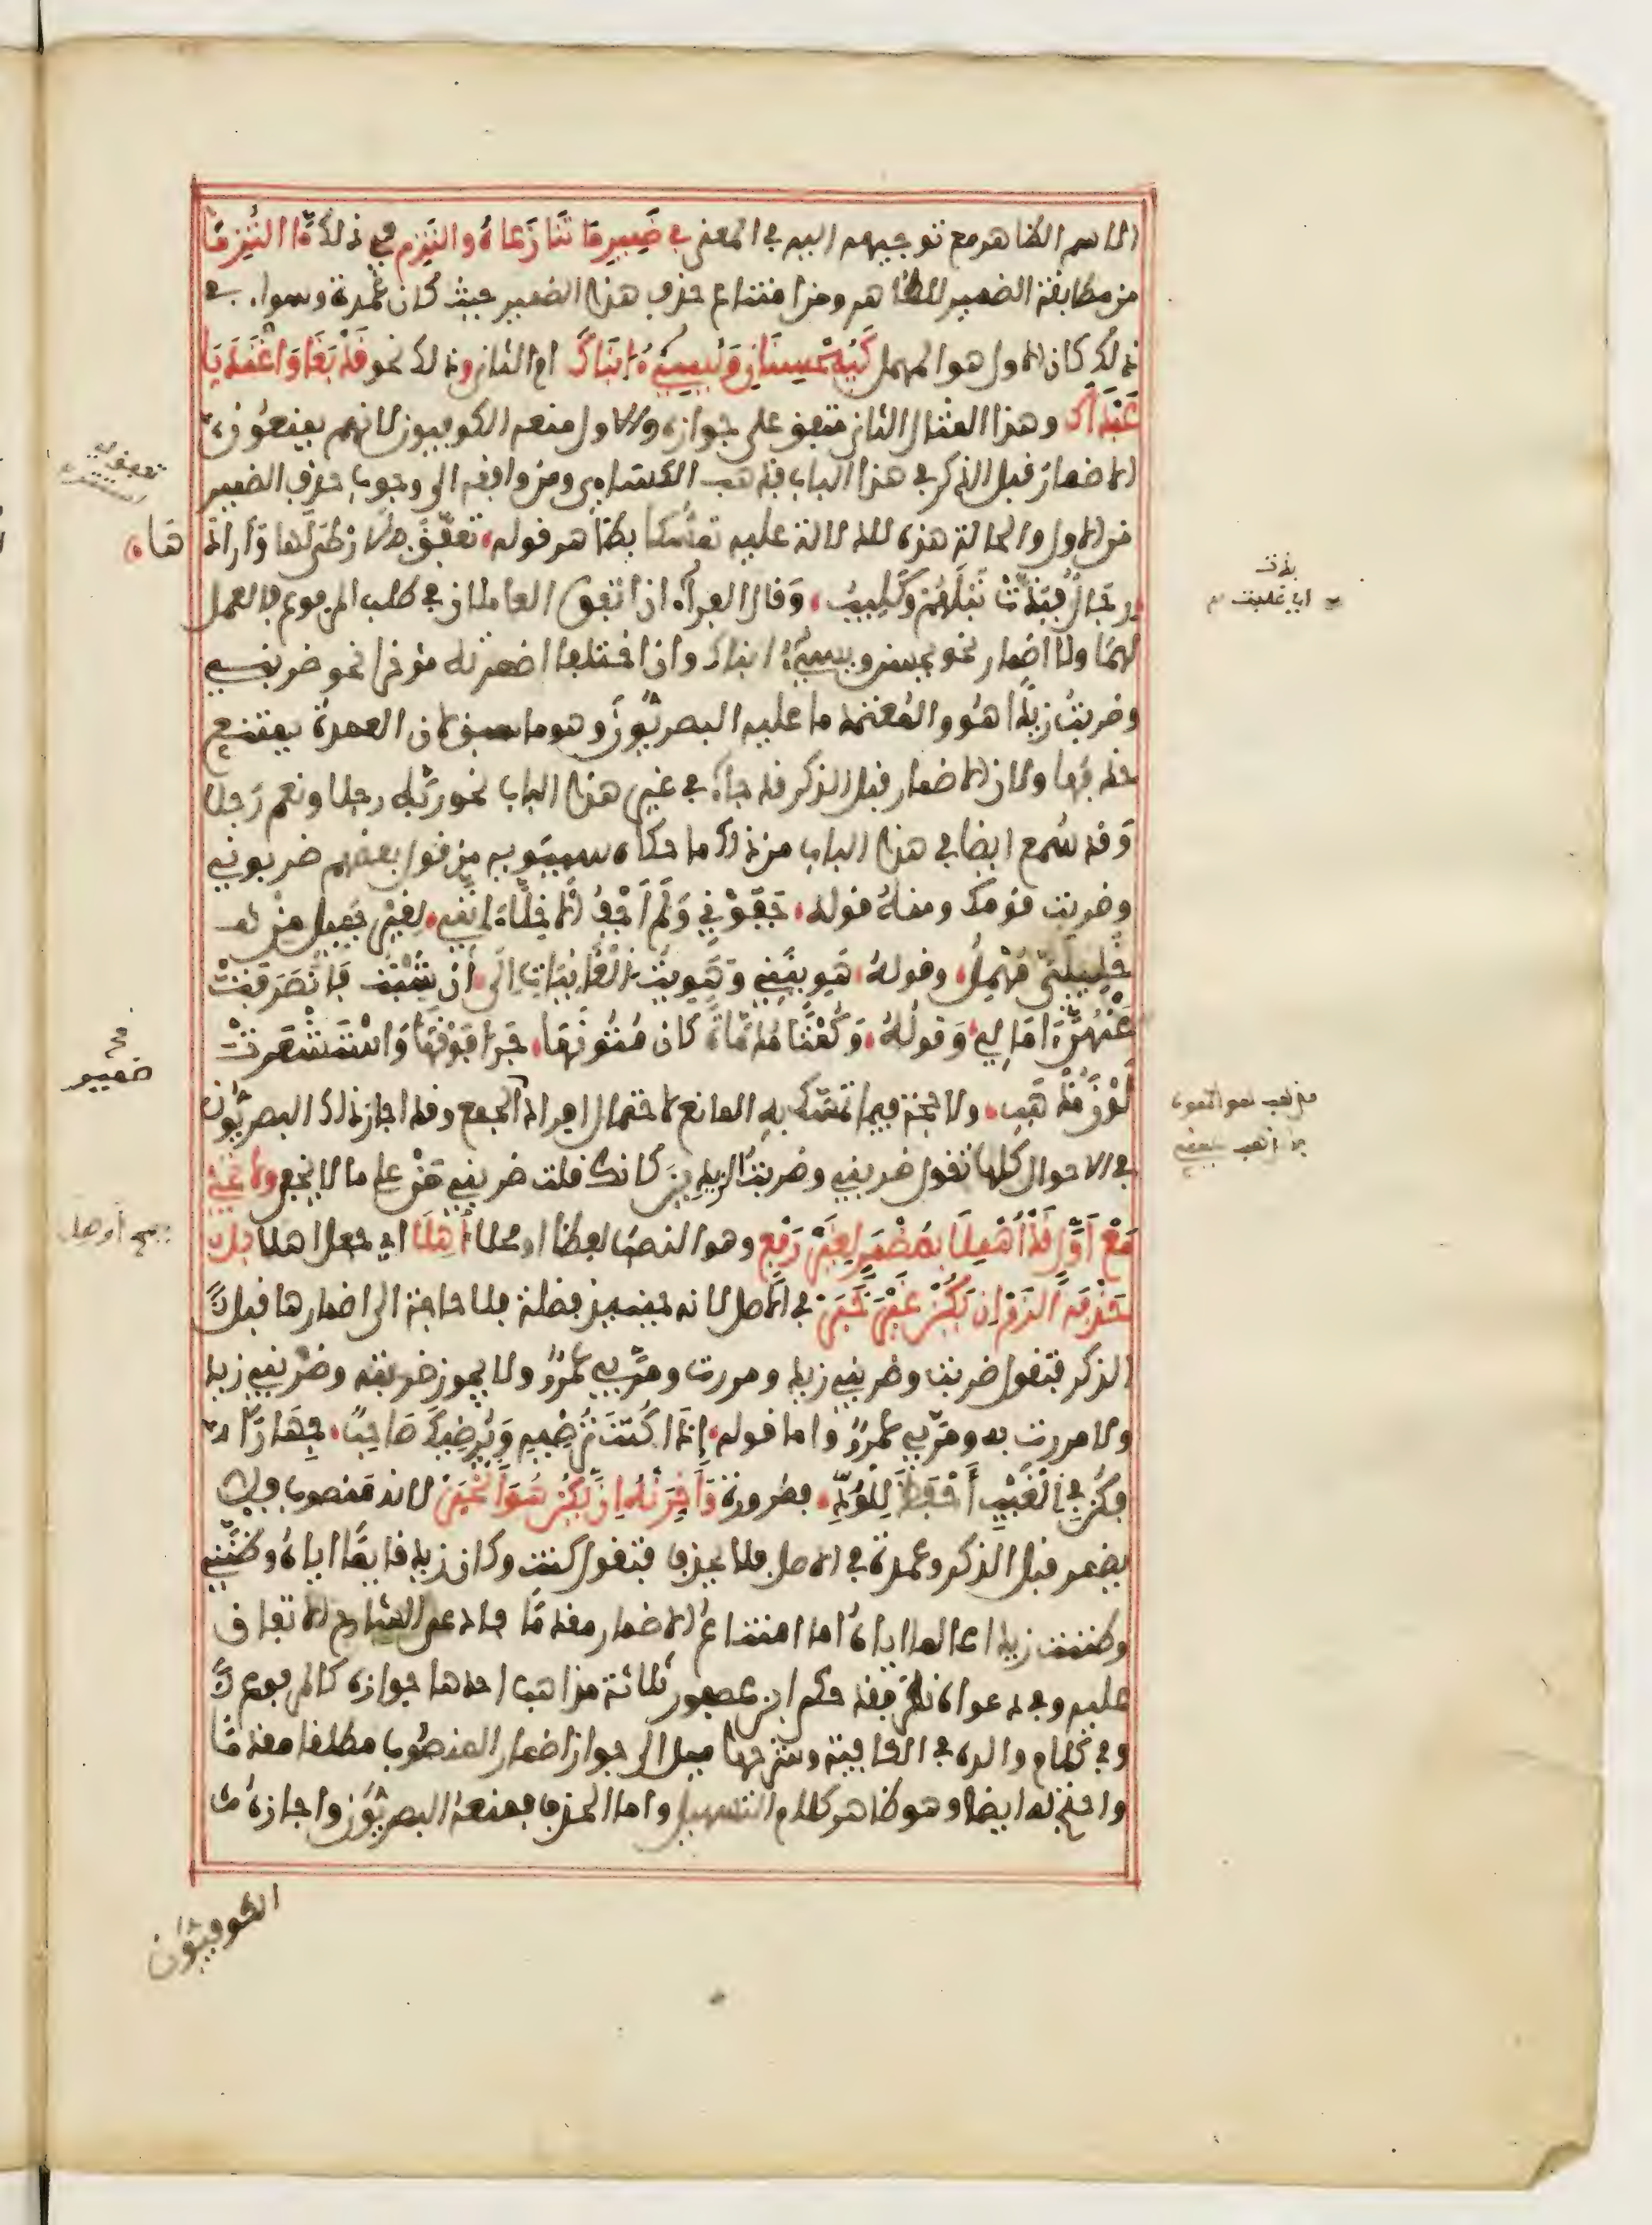 الاسم الظاهر مع توجيههم اليه في المعنى في ضَمِيرِ مَا تَنَازَعَاهُ والتَزِم في ذلك مَا التُزِمَا
من مطابقة الضمير للظاهر ومن امتناع حذف هذا الضمير حيث كان عُمدة وسواء في
ذلك كان الاول هو المهمل كَيُحْسِنَانِ وَيُسِيءُ ابْنَاكَ ام الثاني وذلك نحو قَدْ بَغَى وَاعْتَدَيَا
عَبْدَاكَ وهذا المثال الثاني متفق على جوازه والاول منعه الكوفيون لانهم يمنعون
الاضمار قبل الذكر في هذا الباب فذهب الكسائي ومن وافقه الى وجوب حذف الضمير
من الاول والحالة هذه للدلالة عليه تمسكا بظاهر قوله تعفّق بالارطى لها وأرادها
رجال فبذّت نبلهم وكليب وقال الفراء ان اتفق العاملان في طلب المرفوع فالعمل
لهما ولا اضمار نحو يحسن ويسيء ابناك وان اختلفا اضمرته مؤخرا نحو ضربني
وضربتُ زيدًا هو والمعتمد ما عليه البصريّون وهو ما سبق لان العمدة يمتنع
حذفها ولان الاضمار قبل الذكر قد جاء في غير هذا الباب نحو ربّه رجلا ونعم رجلا
وقد سُمع ايضا في هذا الباب من ذلك ما حكاه سيبويه من قول بعضهم ضربوني
وضربت قومك ومنهُ قوله جَفَوْنِي وَلَمْ أَجْفُ الاخِلَّاءَ إنَّنِي لِغَيْرِ جَمِيلٍ مِنْ
خَلِيلِيَّ مُهْمِلُ وقولهُ هَوِيتَنِي وَهَوِيتُ الْغَانِيَاتِ إلَى أنْ شِبْتُ فَانْصَرَفَتْ
عَنْهُنَّ ءامَالِي وَقولُهُ وَكُمْتًا مُدَمَّاةً كَأن مُتُونَهَا جَرَى فَوْقَهَا وَاسْتَشْعَرَتْ
لَوْنَ مُذْهَبِ ولا حجة فيما تمسّك به المانع لاحتمال افراد الجمع وقد اجاز ذلك البصريّون
في الاحوال كلها تقول ضربني وضربت الزيدين كانك قلت ضربني مَنْ على ما لا يخفى وَلَا تَجِئْ
مَعْ أَوَّلٍ قَدْ أُهْمِلَا بِمُضْمَرٍ لِغَيْرِ رَفْعٍ وهو النصب لفظا او محلا أُوهِلَا اي جعل اهلا بَلْ
حَذْفَهُ الْزَمْ إن يَكُنْ غَيْرَ خَبَرْ في الاصل لانه حينئذ فضلة فلا حاجة الى اضمارها قبل
الذكر فتقول ضربت وضربني زيد ومررت ومرّ بي عمرٌو ولا يجوز ضربته وضربني زيد
ولا مررت به ومرّ بي عمرٌو واما قوله إذَا كُنْتَ تُرْضِيهِ وَيُرْضِيكَ صَاحِبٌ جِهَارًا
فَكُنْ فِي الْغَيْبِ أَحْفَظَ لِلْوُدِّ فضرورة وَأَخِّرَنْهُ إِنْ يَكُنْ هُوَ الْخَبَرْ لانه منصوب فلا
يضمر قبل الذكر وعمدة في الاصل فلا يحذف فتقول كنت وكان زيد قايمًا اياهُ وظننّي
وظننت زيدا عالما اياهُ اما امتناعُ الاضمار مقدمًا فادعى الشارح الاتفاق
عليه وفي دعواه نظر فقد حكى ابن عصفور ثلاثة مذاهب احدها جوازه كالمرفوع
وفي كلام والده في الكافية وشرحها ميل الى جواز اضمار المنصوب مطلقا مقدمًا
واختاره ايضا وهو ظاهر كلام التسهيل واما الحذف فمنعهُ البصريّون واجازهُ
الكوفيّون
صح
ضمير
صح أوهلا